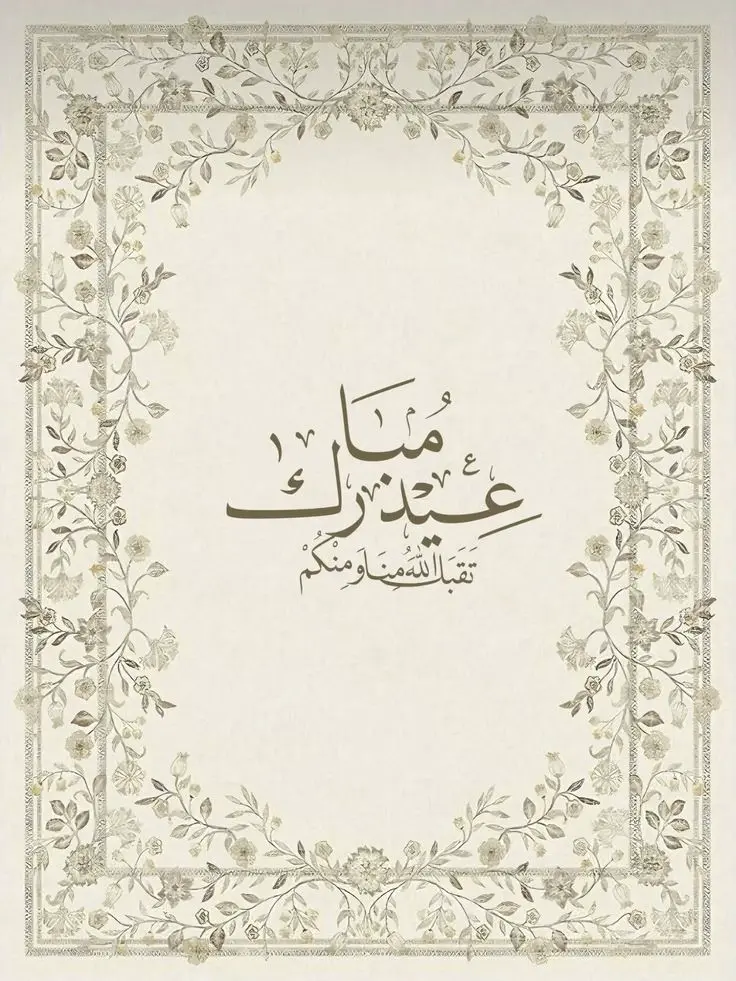 عيد مبارك
تَقَبَّلَ اللهُ مِنَّا وَمِنْكُمْ